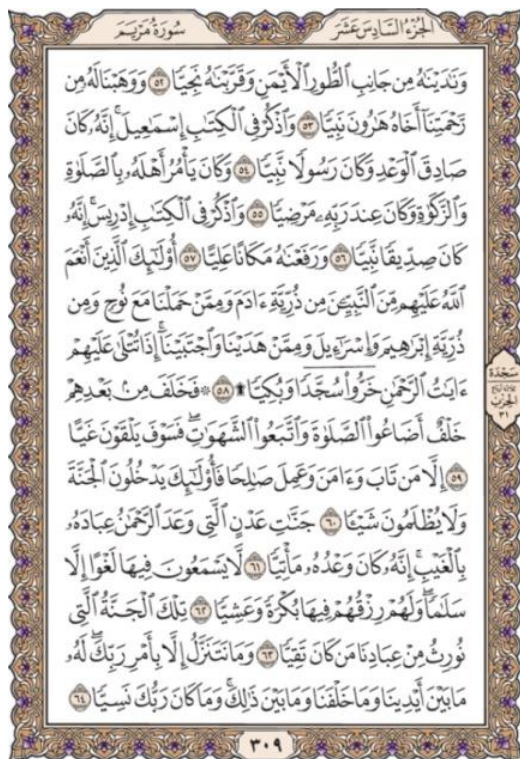 الجزء السادس عشر
سورة مريم
وَنَٰدَيْنَٰهُ مِن جَانِبِ ٱلطُّورِ ٱلْأَيْمَنِ وَقَرَّبْنَٰهُ نَجِيًّا ٥٢ وَوَهَبْنَا لَهُۥ مِن
رَّحْمَتِنَآ أَخَاهُ هَٰرُونَ نَبِيًّا ٥٣ وَٱذْكُرْ فِى ٱلْكِتَٰبِ إِسْمَٰعِيلَ ۚ إِنَّهُۥ كَانَ
صَادِقَ ٱلْوَعْدِ وَكَانَ رَسُولًا نَّبِيًّا ٥٤ وَكَانَ يَأْمُرُ أَهْلَهُۥ بِٱلصَّلَوٰةِ
وَٱلزَّكَوٰةِ وَكَانَ عِندَ رَبِّهِۦ مَرْضِيًّا ٥٥ وَٱذْكُرْ فِى ٱلْكِتَٰبِ إِدْرِيسَ ۚ إِنَّهُۥ
كَانَ صِدِّيقًا نَّبِيًّا ٥٦ وَرَفَعْنَٰهُ مَكَانًا عَلِيًّا ٥٧ أُو۟لَٰٓئِكَ ٱلَّذِينَ أَنْعَمَ
ٱللَّهُ عَلَيْهِم مِّنَ ٱلنَّبِيِّـۧنَ مِن ذُرِّيَّةِ ءَادَمَ وَمِمَّنْ حَمَلْنَا مَعَ نُوحٍ وَمِن
ذُرِّيَّةِ إِبْرَٰهِيمَ وَإِسْرَٰٓءِيلَ وَمِمَّنْ هَدَيْنَا وَٱجْتَبَيْنَآ ۚ إِذَا تُتْلَىٰ عَلَيْهِمْ
ءَايَٰتُ ٱلرَّحْمَٰنِ خَرُّوا۟ سُجَّدًا وَبُكِيًّا ۩ ٥٨ ۞ فَخَلَفَ مِنۢ بَعْدِهِمْ
خَلْفٌ أَضَاعُوا۟ ٱلصَّلَوٰةَ وَٱتَّبَعُوا۟ ٱلشَّهَوَٰتِ ۖ فَسَوْفَ يَلْقَوْنَ غَيًّا
٥٩ إِلَّا مَن تَابَ وَءَامَنَ وَعَمِلَ صَٰلِحًا فَأُو۟لَٰٓئِكَ يَدْخُلُونَ ٱلْجَنَّةَ
وَلَا يُظْلَمُونَ شَيْـًٔا ٦٠ جَنَّٰتِ عَدْنٍ ٱلَّتِى وَعَدَ ٱلرَّحْمَٰنُ عِبَادَهُۥ
بِٱلْغَيْبِ ۚ إِنَّهُۥ كَانَ وَعْدُهُۥ مَأْتِيًّا ٦١ لَّا يَسْمَعُونَ فِيهَا لَغْوًا إِلَّا
سَلَٰمًا ۖ وَلَهُمْ رِزْقُهُمْ فِيهَا بُكْرَةً وَعَشِيًّا ٦٢ تِلْكَ ٱلْجَنَّةُ ٱلَّتِى
نُورِثُ مِنْ عِبَادِنَا مَن كَانَ تَقِيًّا ٦٣ وَمَا نَتَنَزَّلُ إِلَّا بِأَمْرِ رَبِّكَ ۖ لَهُۥ
مَا بَيْنَ أَيْدِينَا وَمَا خَلْفَنَا وَمَا بَيْنَ ذَٰلِكَ ۚ وَمَا كَانَ رَبُّكَ نَسِيًّا ٦٤
سجدة
الحزب
٣١
٣٠٩